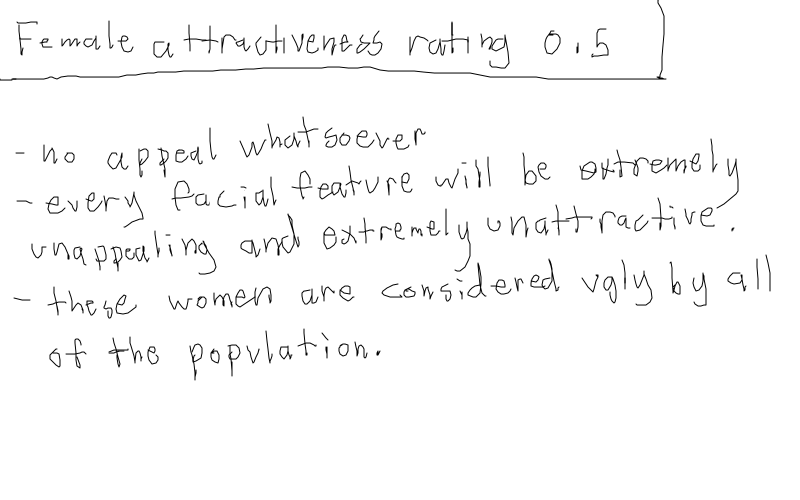 Female attractiveness rating 0.5
- no appeal whatsoever
- every facial feature will be extremely
unappealing and extremely unattractive.
- these women are considered ugly by all
of the population.